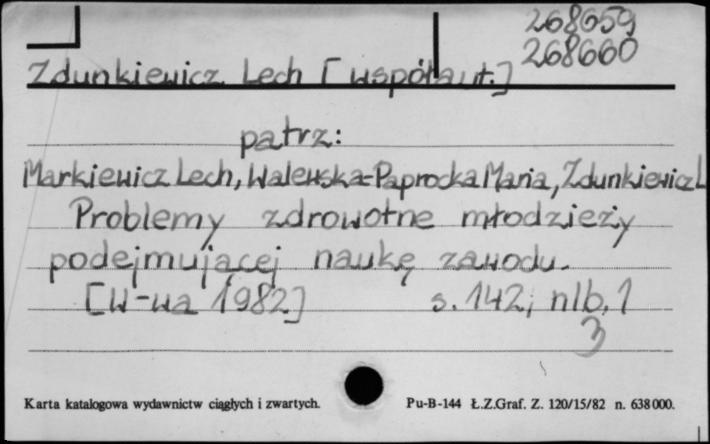 268659
268660
Zdunkiewicz Lech [współaut.]
patrz:
Markiewicz Lech, Walewska-Paprocka Maria, Zdunkiewicz L
Problemy zdrowotne młodzieży
podejmującej naukę zawodu.
[W-wa 1982] s. 142, nlb. 1
3
Karta katalogowa wydawnictw ciągłych i zwartych. Pu-B-144 Ł.Z.Graf. Z. 120/15/82 n. 638000.